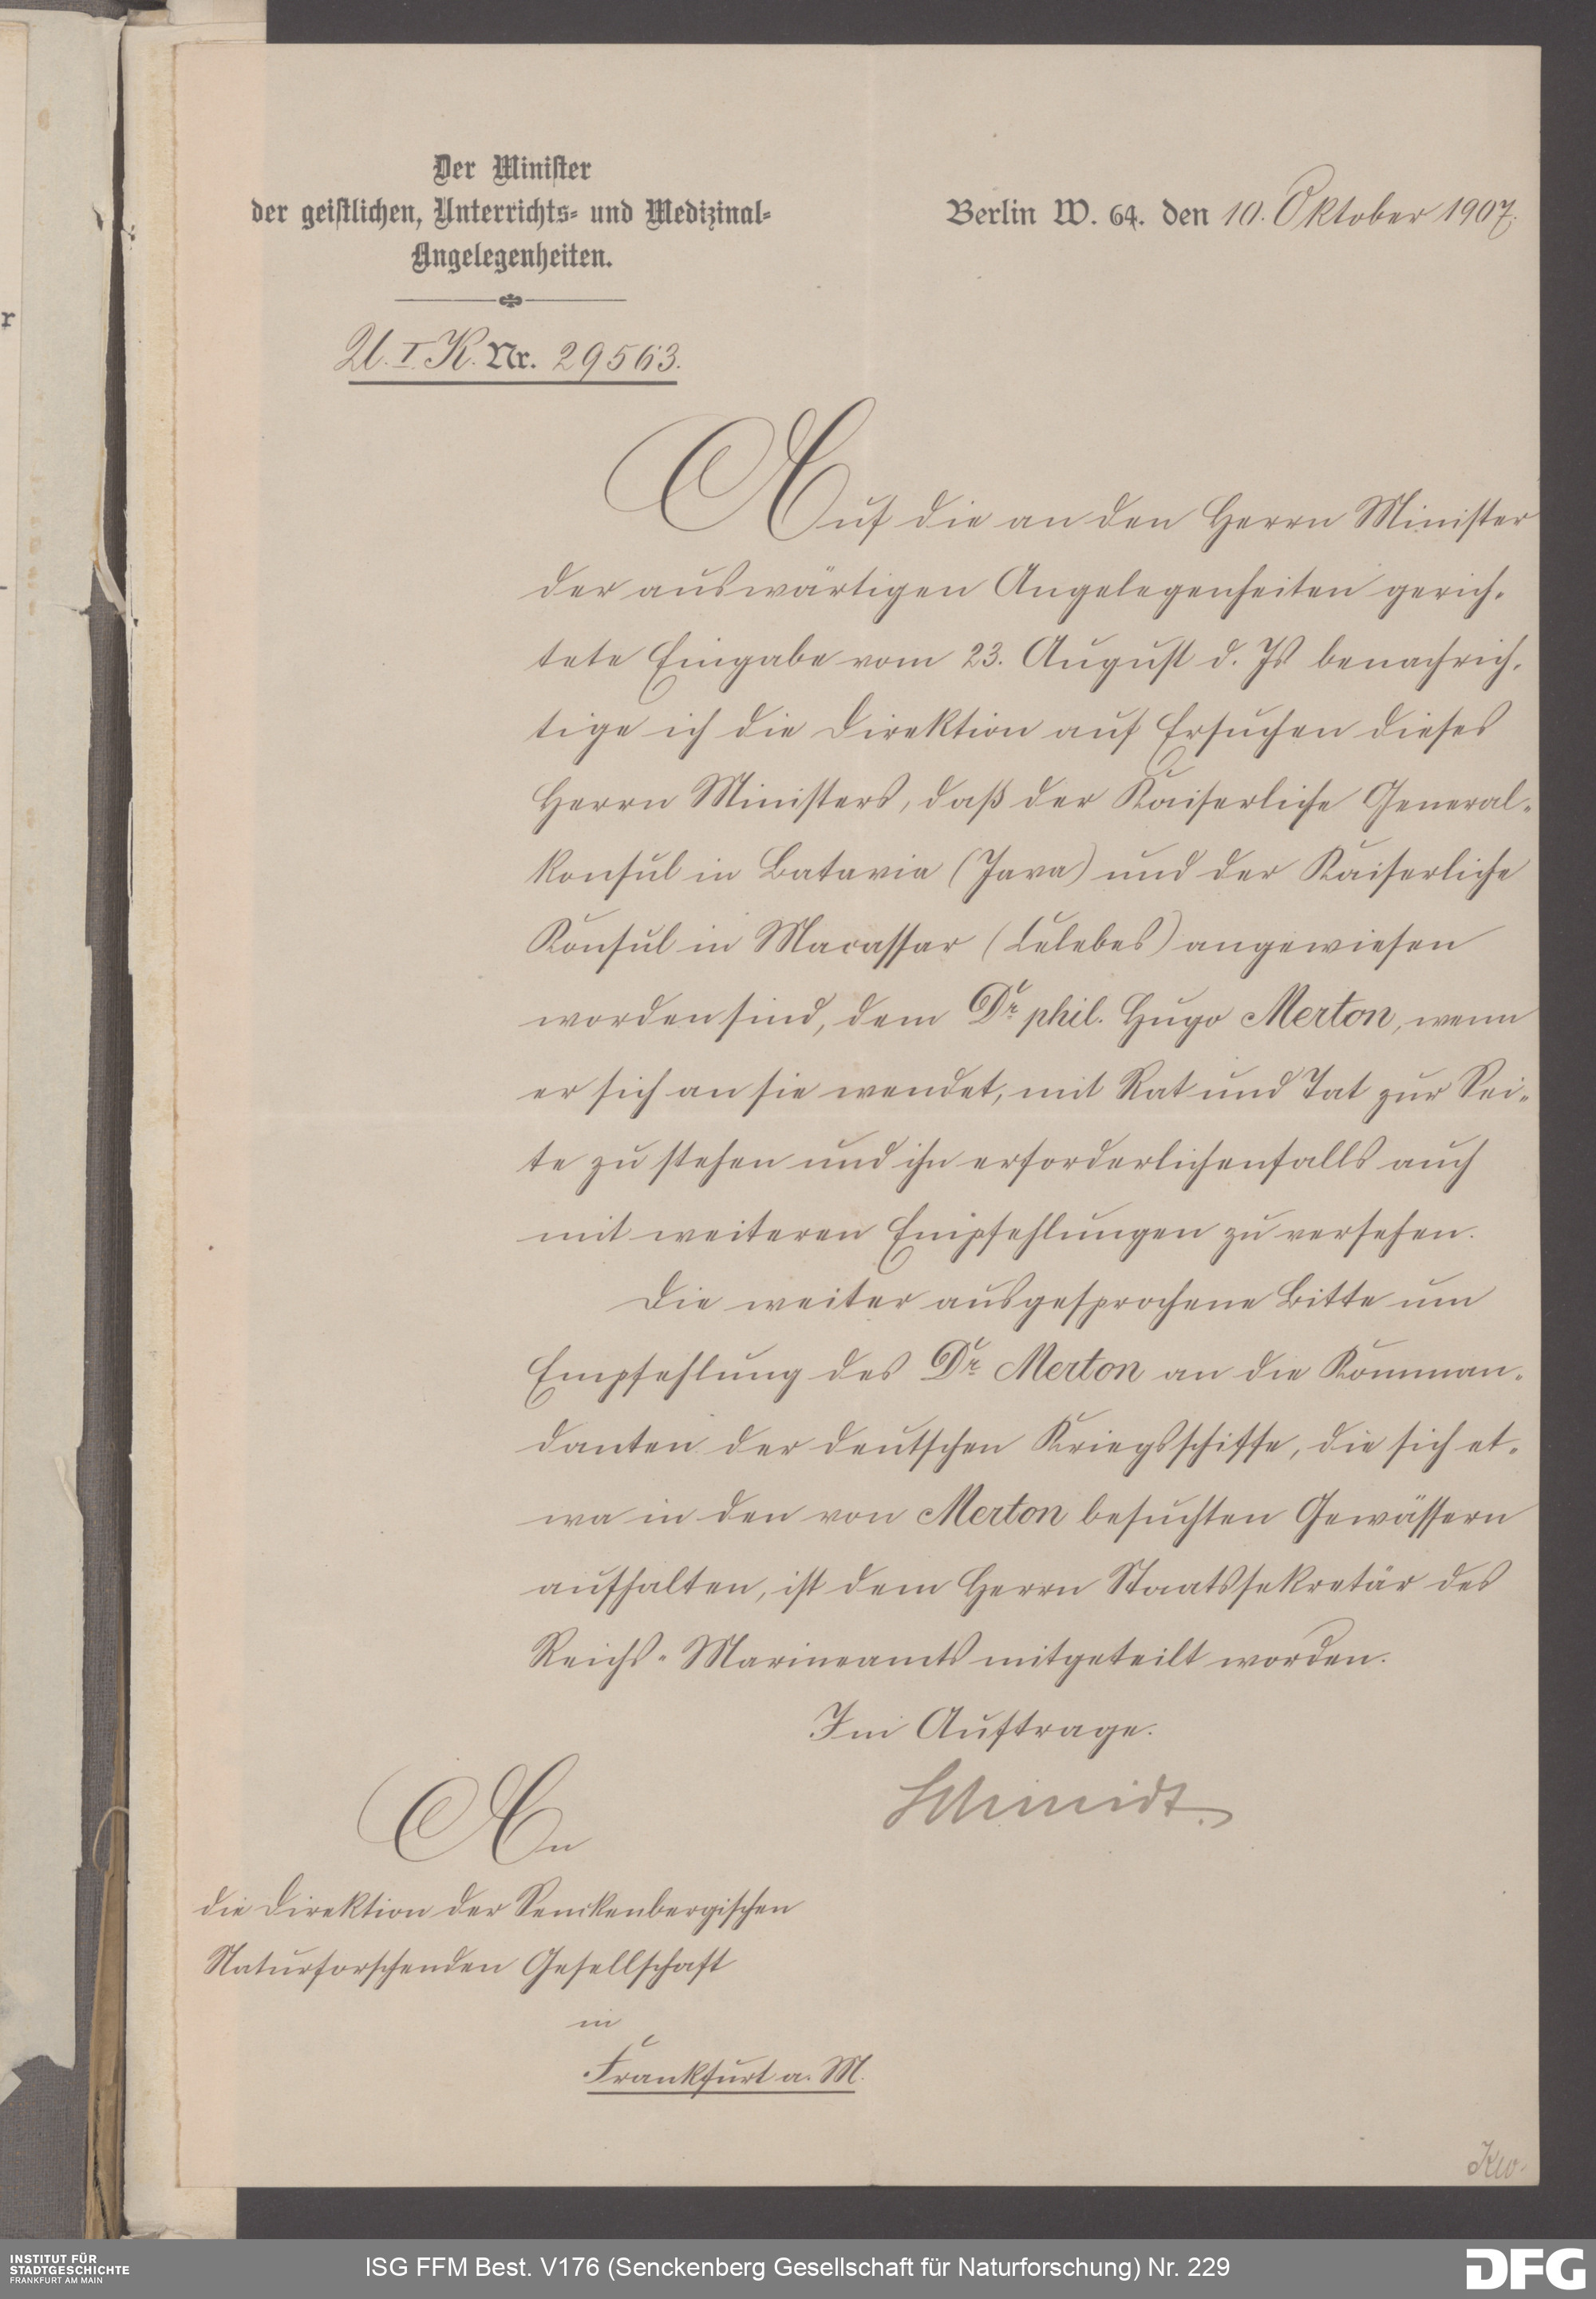 Der Minister
der geistlichen, Unterrichts- und Medizinal-
Angelegenheiten.
Berlin W. 64. den 10. Oktober 1907.
U. I. K. Nr. 29563.
Auf die an den Herrn Minister
der auswärtigen Angelegenheiten gerich-
tete Eingabe vom 23. August d. Js benachrich-
tige ich die Direktion auf Ersuchen dieses
Herrn Ministers, daß der Kaiserliche General-
konsul in Batavia (Java) und der Kaiserliche
Konsul in Macassar (Celebes) angewiesen
worden sind, dem Dr. phil. Hugo Merton, wenn
er sich an sie wendet, mit Rat und Tat zur Sei-
te zu stehen und ihn erforderlichenfalls auch
mit weiteren Empfehlungen zu versehen.
Die weiter ausgesprochene Bitte um
Empfehlung des Dr. Merton an die Komman-
danten der deutschen Kriegsschiffe, die sich et-
wa in den von Merton besuchten Gewässern
aufhalten, ist dem Herrn Staatssekretär des
Reichs-Marineamts mitgeteilt worden.
Im Auftrage.
Schmidt.
An
die Direktion der Senckenbergischen
Naturforschenden Gesellschaft
in
Frankfurt a. M.
Kw.
r
INSTITUT FÜR
STADTGESCHICHTE
FRANKFURT AM MAIN
ISG FFM Best. V176 (Senckenberg Gesellschaft für Naturforschung) Nr. 229
DFG